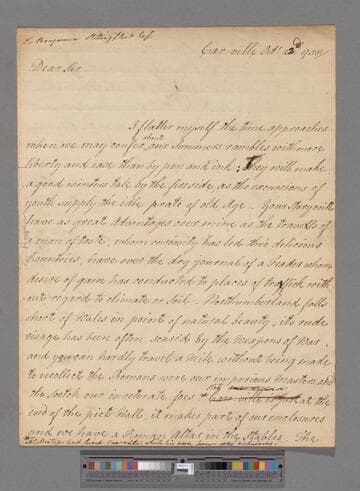 To Benjamin Stillingfleet Esq.
Carville Oct. 22d 1758
Dear Sir
I flatter myself the time approaches
about
when we may confer our Summers rambles with more
liberty and ease than by pen and ink; They will make
a good winters tale by the fireside, as the excursions of
youth supply the idle prate of old age. Your Story will
have as great advantages over mine as the travells of
a man of taste, whom curiosity has led thro delicious
Countries, have over the dry journal of a Trader whom
desire of gain has conducted to places of traffick with
out regard to climate or Soil. Northumberland falls
short of Wales in point of natural beauty, its rude
visage has been often scar'd by the Weapons of War,
and you can hardly travel a Mile without being made
to recollect the Romans were our imperious Masters and
the Scotch our inveterate foes at the
end of the picts Wall, it makes part of our enclosures
and we have a Roman Altar in the Stables. The